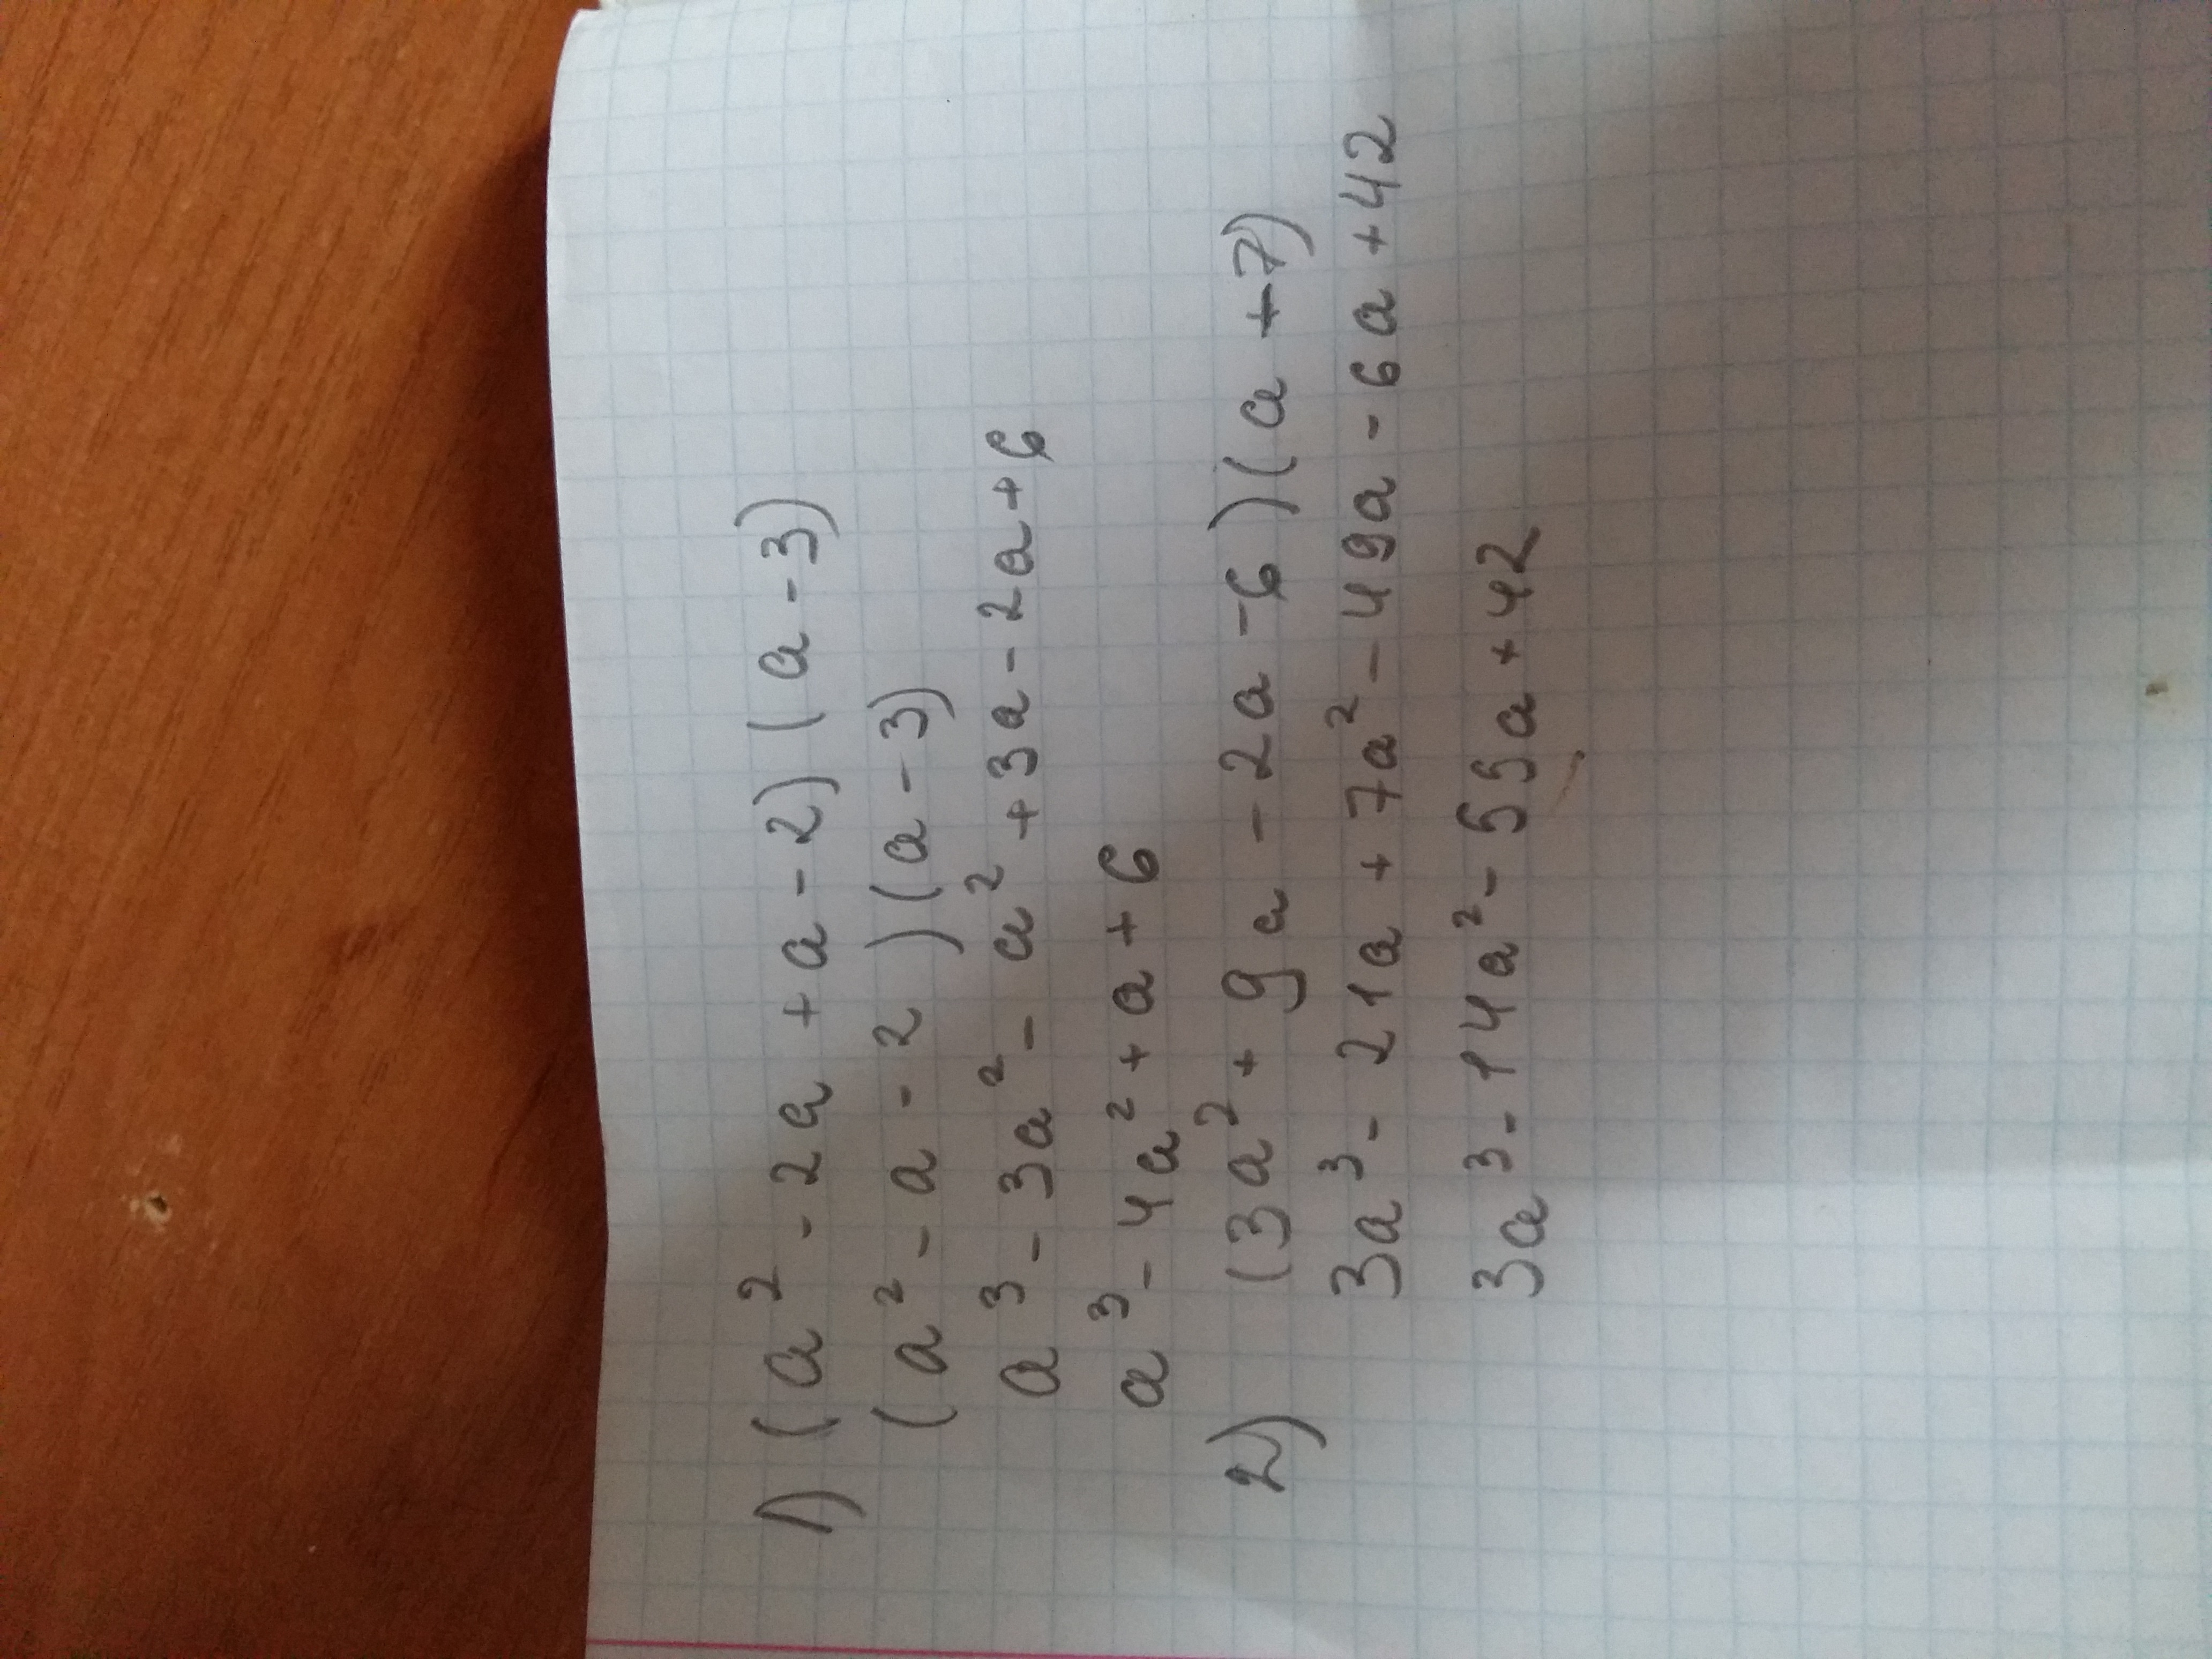 1) (a² - 2a + a - 2) (a - 3)
(a² - a - 2) (a - 3)
a³ - 3a² - a² + 3a - 2a + 6
a³ - 4a² + a + 6
2) (3a² + 9a - 2a - 6) (a + 7)
3a³ - 21a + 7a² - 49a - 6a + 42
3a³ - 14a² - 55a + 42